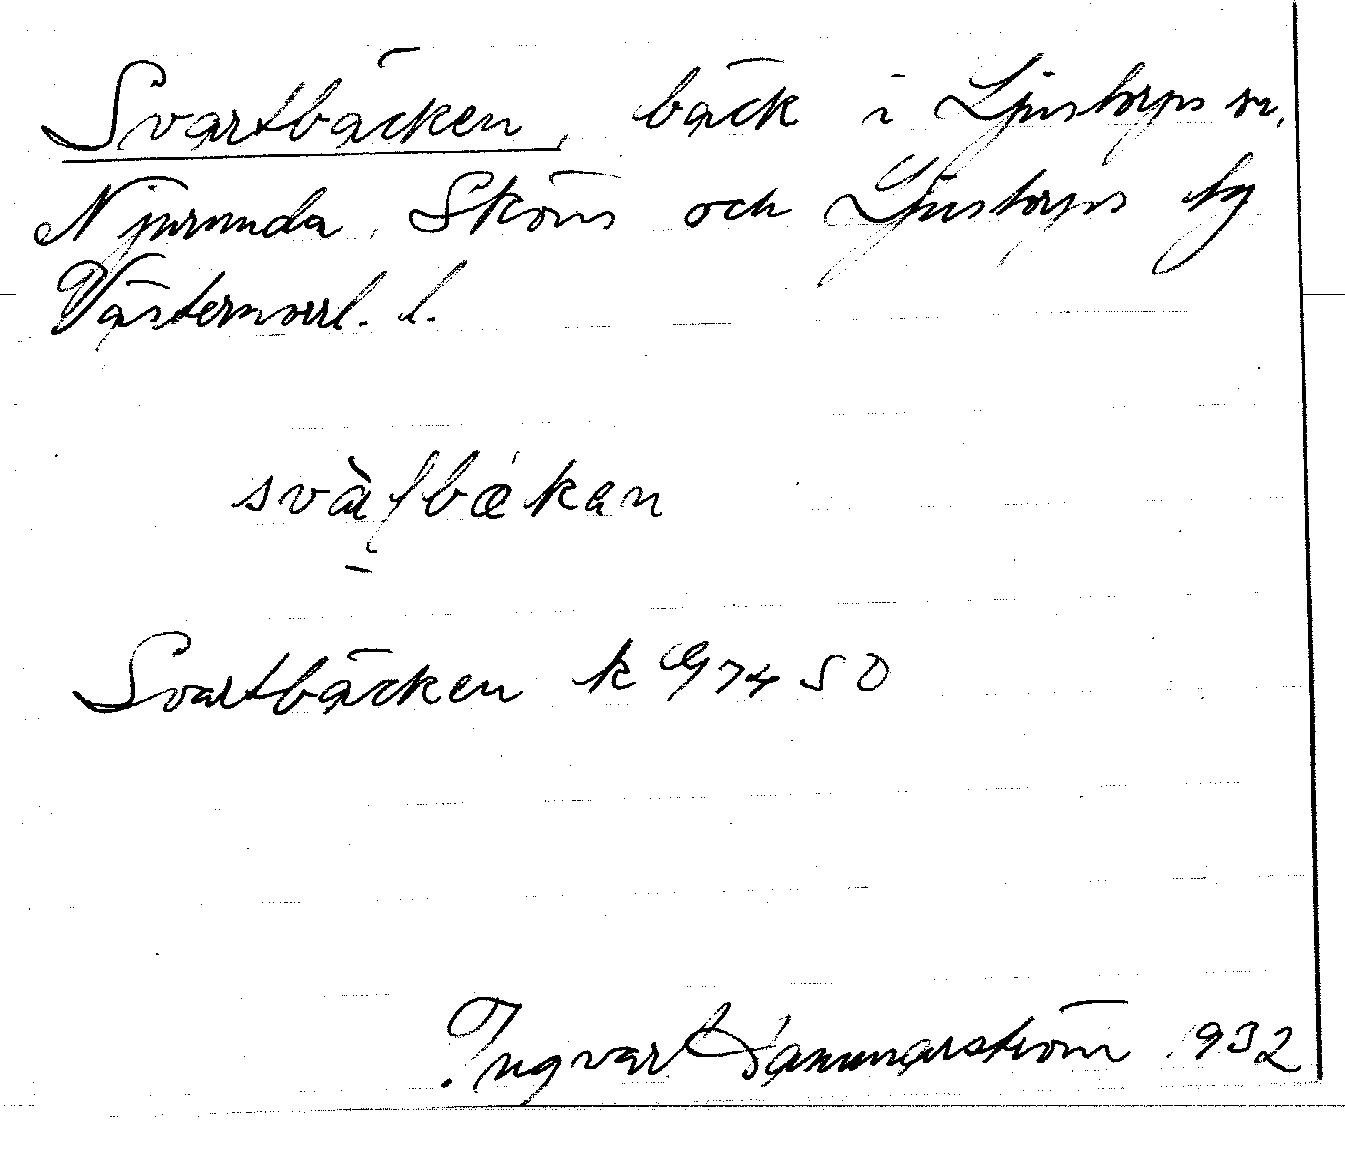 Svartbäcken, bäck i Ljustorps sn,
Njurunda, Sköns och Ljustorps tg
Västernorrl. l.
Svartbäcken k G 74 S O
Ingvar Hammarström 1932